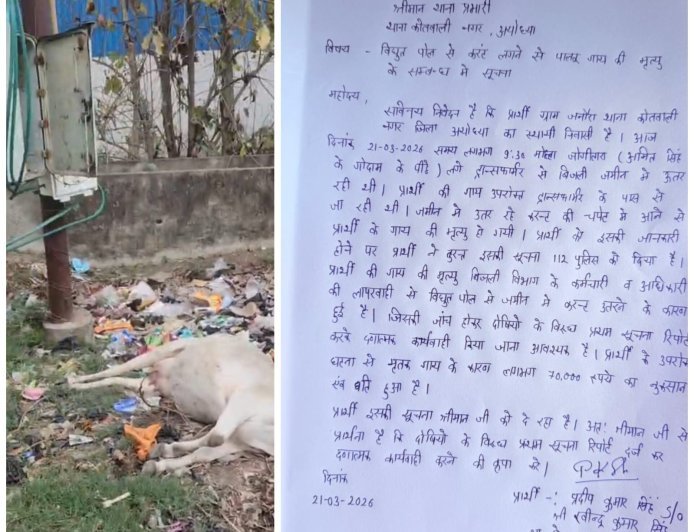 श्रीमान थाना प्रभारी
थाना कोतवाली नगर, अयोध्या
विषय - विद्युत पोल से करंट लगने से पालतू गाय की मृत्यु
के सम्बन्ध में सूचना
महोदय,
सविनय निवेदन है कि प्रार्थी ग्राम जनौरा थाना कोतवाली
नगर जिला अयोध्या का स्थायी निवासी है। आज
दिनांक 21-03-2026 समय लगभग 9:30 मोहल्ला जोगीतारा (अमित सिंह
के गोदाम के पीछे) लगे ट्रान्सफार्मर से बिजली जमीन में उतर
रही थी। प्रार्थी की गाय उपरोक्त ट्रान्सफार्मर के पास से
जा रही थी। जमीन में उतर रहे करन्ट की चपेट में आने से
प्रार्थी के गाय की मृत्यु हो गयी। प्रार्थी को इसकी जानकारी
होने पर प्रार्थी ने तुरन्त इसकी सूचना 112 पुलिस को दिया है।
प्रार्थी की गाय की मृत्यु बिजली विभाग के कर्मचारी व अधिकारी
की लापरवाही से विद्युत पोल से जमीन में करन्ट उतरने के कारण
हुई है। जिसकी जांच होकर दोषियों के विरुद्ध प्रथम सूचना रिपोर्ट
करके दण्डात्मक कार्यवाही किया जाना आवश्यक है। प्रार्थी के उपरोक्त
घटना से मृतक गाय के कारण लगभग 70,000 रुपये का नुकसान
एवं क्षति हुआ है।
प्रार्थी इसकी सूचना श्रीमान जी को दे रहा है। अतः श्रीमान जी से
प्रार्थना है कि दोषियों के विरुद्ध प्रथम सूचना रिपोर्ट दर्ज कर
दण्डात्मक कार्यवाही करने की कृपा करें।
दिनांक
21-03-2026
प्रार्थी -: प्रदीप कुमार सिंह S/o
श्री रवीन्द्र कुमार सिंह